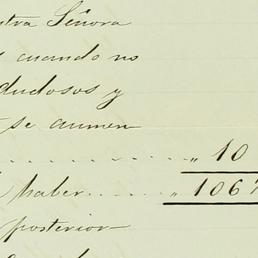 ntra Señora
s cuando no
dudosos y
se aumen
10
haber 1067
posterior